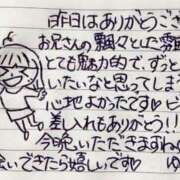 昨日はありがとうござ
お兄さんの飄々とした雰
とても魅力的で、ずっと
いたいなと思ってしまう
心地よかったです♡ビ
差入れもありがとう!!
今晩いただきますね
会いできたら嬉しいです♡ ゆ